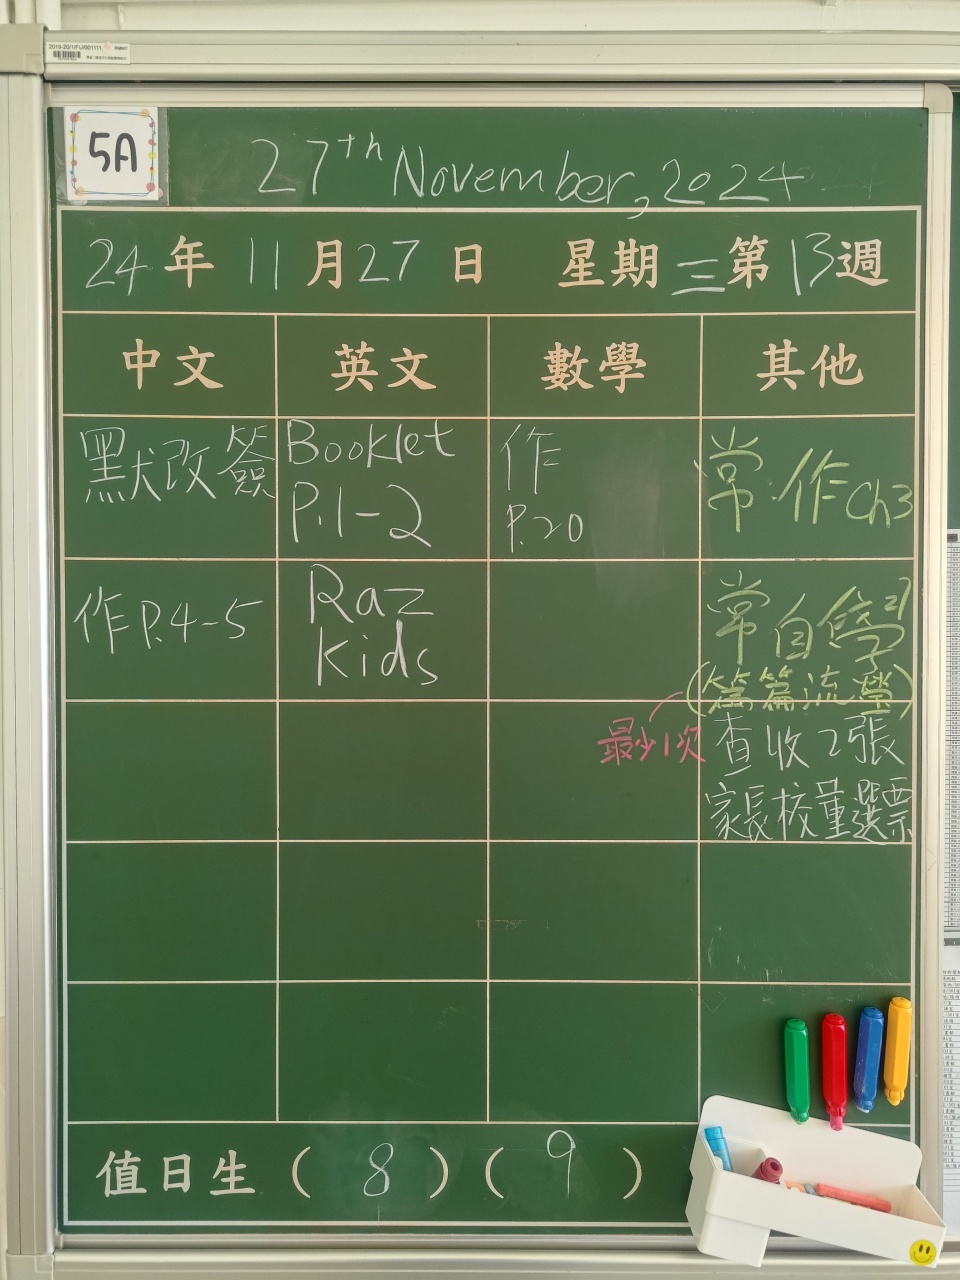 2019-20/1/FU/001111
5A
27th November, 2024
24年 11月27日 星期三 第13週
中文 英文 數學 其他
默改簽
Booklet
P.1-2
作
P.20
常.作Ch3
作P.4-5
Raz
Kids
常自學
(篇篇流螢)
最少1次
查收2張
家長校董選票
值日生 ( 8 ) ( 9 )